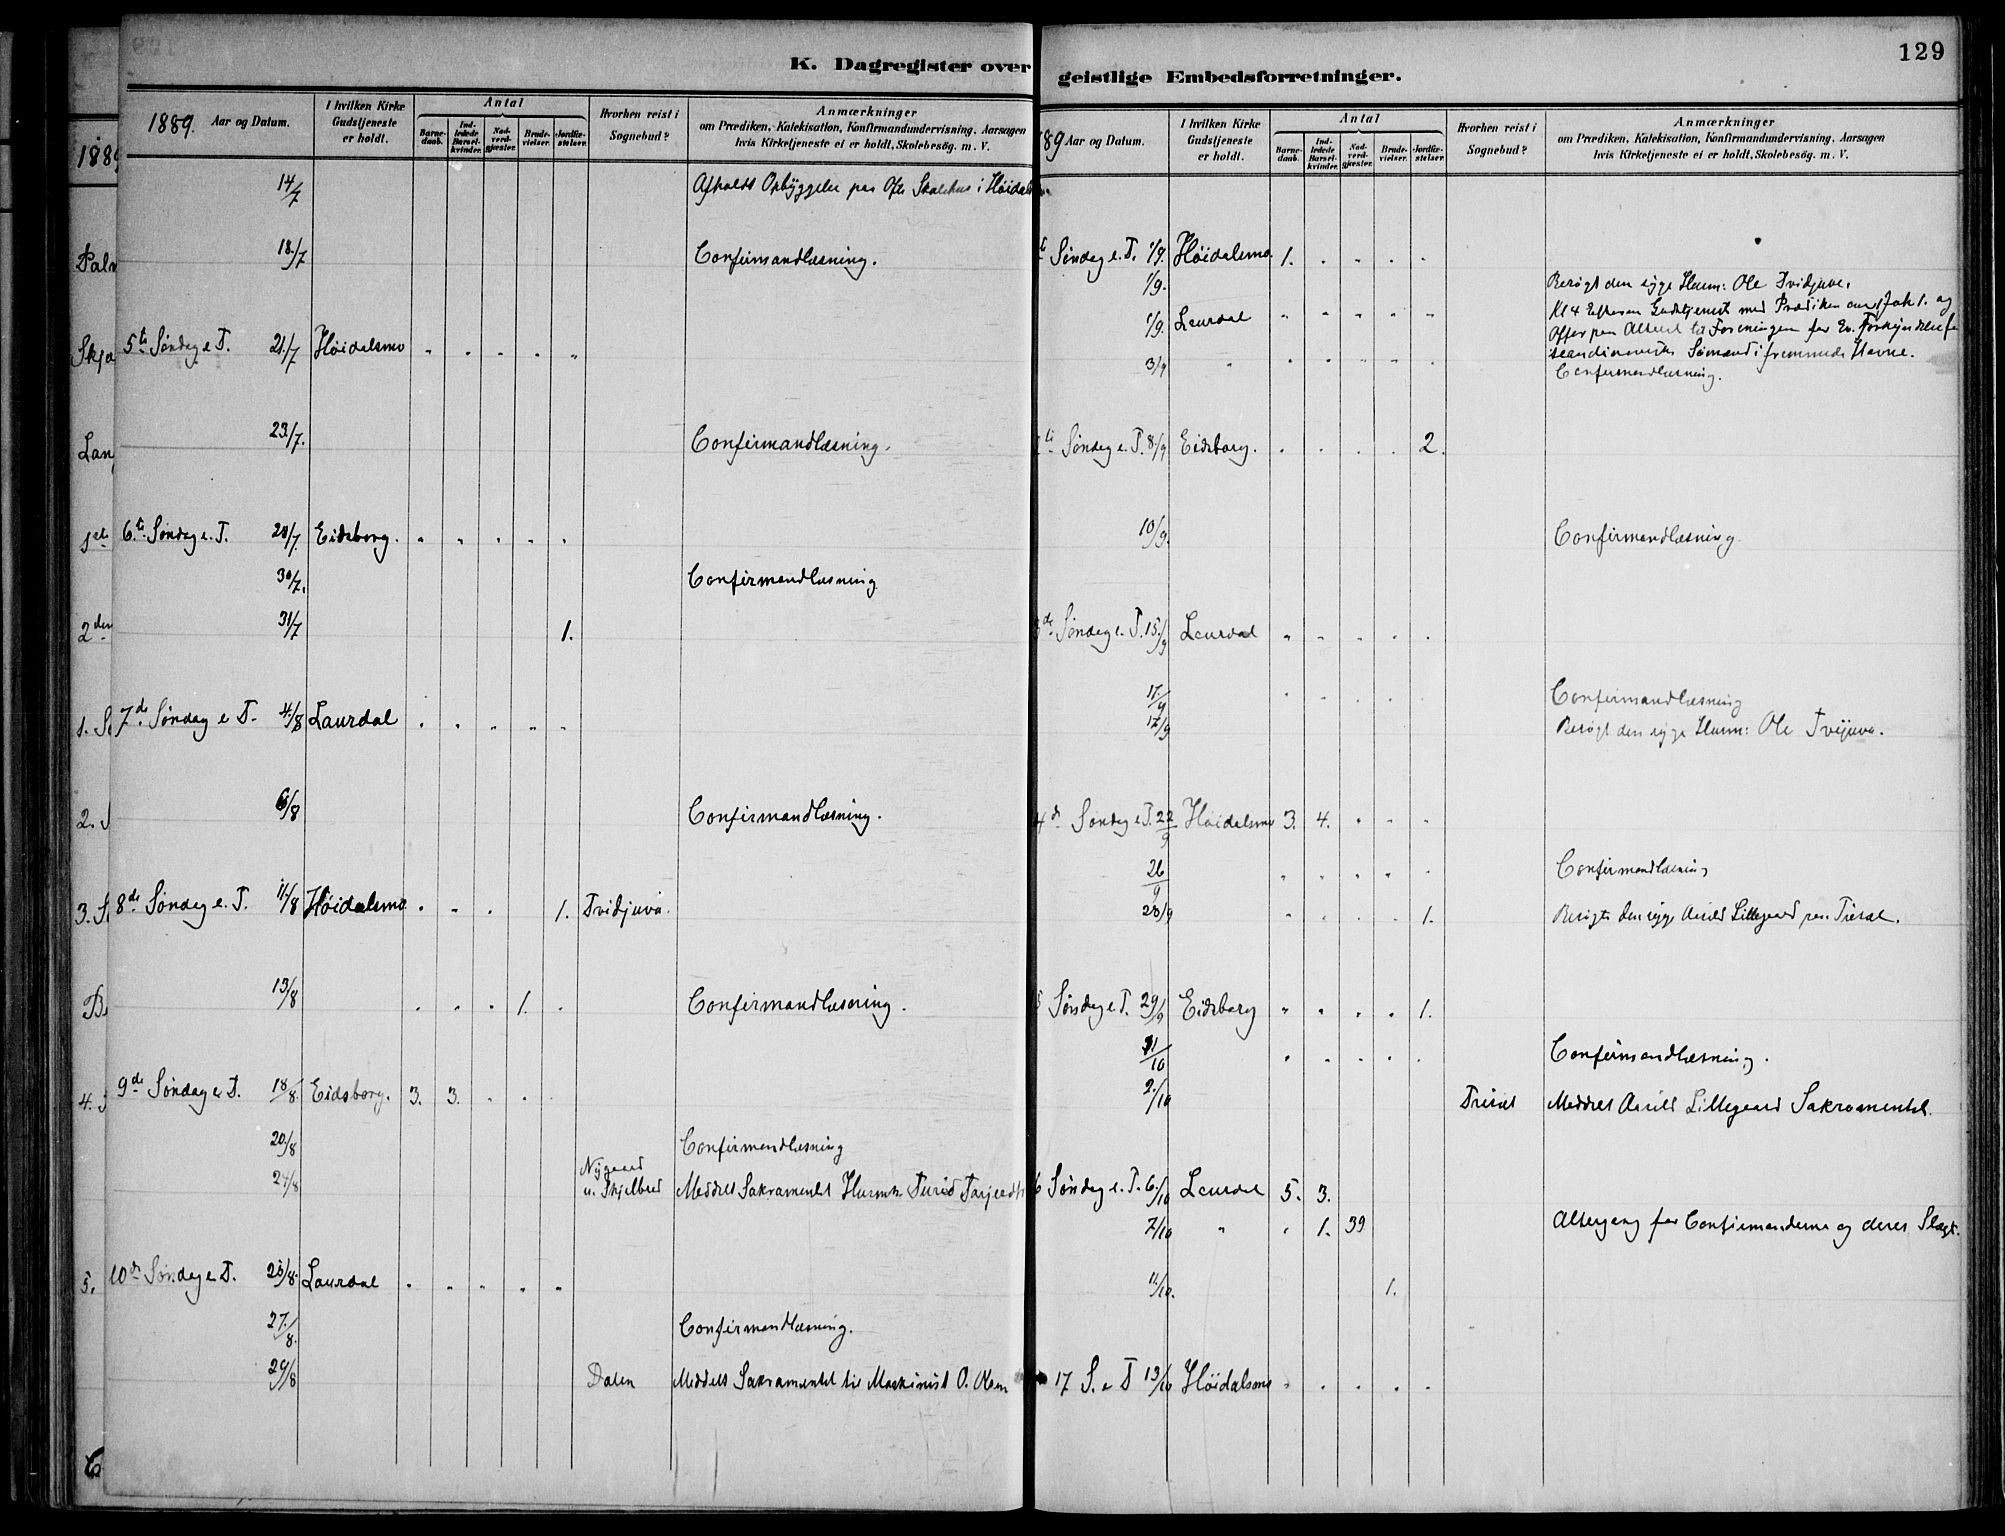 129
K. Dagregister over
1889. Aar og Datum.
I hvilken Kirke Gudstjeneste er holdt.
Antal
Barne-daab.
Ind-ledede Barsel-kvinder.
Nad-verd-gjester.
Brude-vielser.
Jordfæ-stelser.
Hvorhen reist i Sognebud?
Anmærkninger
om Prædiken, Katekisation, Konfirmandundervisning, Aarsagen
hvis Kirketjeneste ei er holdt, Skolebesøg. m. V.
14/7 Afholdt Opbyggelse paa Ofte Skolehus i Høidalsmo
18/7 Confirmandlæsning.
5te Søndag e. T. 21/7 Høidalsmo " " " " "
23/7. Confirmandlæsning.
6te Søndag e. T. 28/7. Eidsborg. " " " " "
30/7. Confirmandlæsning
31/7 1.
7de Søndag e T. 4/8 Laurdal " " " " "
6/8 Confirmandlæsning.
8de Søndag e. T. 11/8 Høidalsmo " " " 1. Tvidjuva.
13/8 " " " 1. " Confirmandlæsning.
9de Søndag e. T. 18/8. Eidsborg. 3. 3. " " "
20/8 Confirmandlæsning
24/8 Nygaard u. Skjelbred Meddelt Sakramentet Huusm: Turid Tarjeidst
10de Søndag e. T. 25/8. Laurdal " " " " "
27/8. Confirmandlæsning.
29/8 Dalen Meddelt Sakramentet til Maskinist O. Olsen
geistlige Embedsforretninger.
89 Aar og Datum.
I hvilken Kirke Gudstjeneste er holdt.
Antal
Barne-daab.
Ind-ledede Barsel-kvinder.
Nad-verd-gjester.
Brude-vielser.
Jordfæ-stelser.
Hvorhen reist i Sognebud?
Anmærkninger
om Prædiken, Katekisation, Konfirmandundervisning, Aarsagen
hvis Kirketjeneste ei er holdt, Skolebesøg. m. V.
Søndag e. T. 1/9. Høidalsmo 1. " " " "
1/9. Besøgt den syge Huusm: Ole Tvidjuva.
1/9. Laurdal " " " " " Kl 4 Efterm Gudstjenest med Prædiken over Joh 1. og
Offer paa Alteret til Foreningen for Ev. Forkyndelse f
scandinaviske Sømænd i fremmede Havne.
3/9 " " " " " " Confirmandlæsning.
Søndag e. T. 8/9 Eidsborg. " " " " 2.
10/9. Confirmandlæsning.
de Søndag e. T. 15/9 Laurdal " " " " "
17/9 " " " " " Confirmandlæsning
17/9 Besøgt den syge Huusm: Ole Tveijuva.
4de Søndag e. T. 22/9 Høidalsmo 3. 4. " " "
26/9 " " " " " Confirmandlæsning
28/9 " " " " 1. Besøgte den syge Aasild Lillegaard paa Triset.
Søndag e T. 29/9 Eidsborg " " " " 1.
1/10 " " " " " Confirmandlæsning.
2/10 Triset Meddelt Aasild Lillegaard Sakramentet.
6 Søndag e. T. 6/10 Laurdal 5. 3.
7/10 " " 1. 39 Altergang for Confirmanderne og deres Slægt.
11/10. 1.
17 S. e T 13/10 Høidalsmo " " " " "